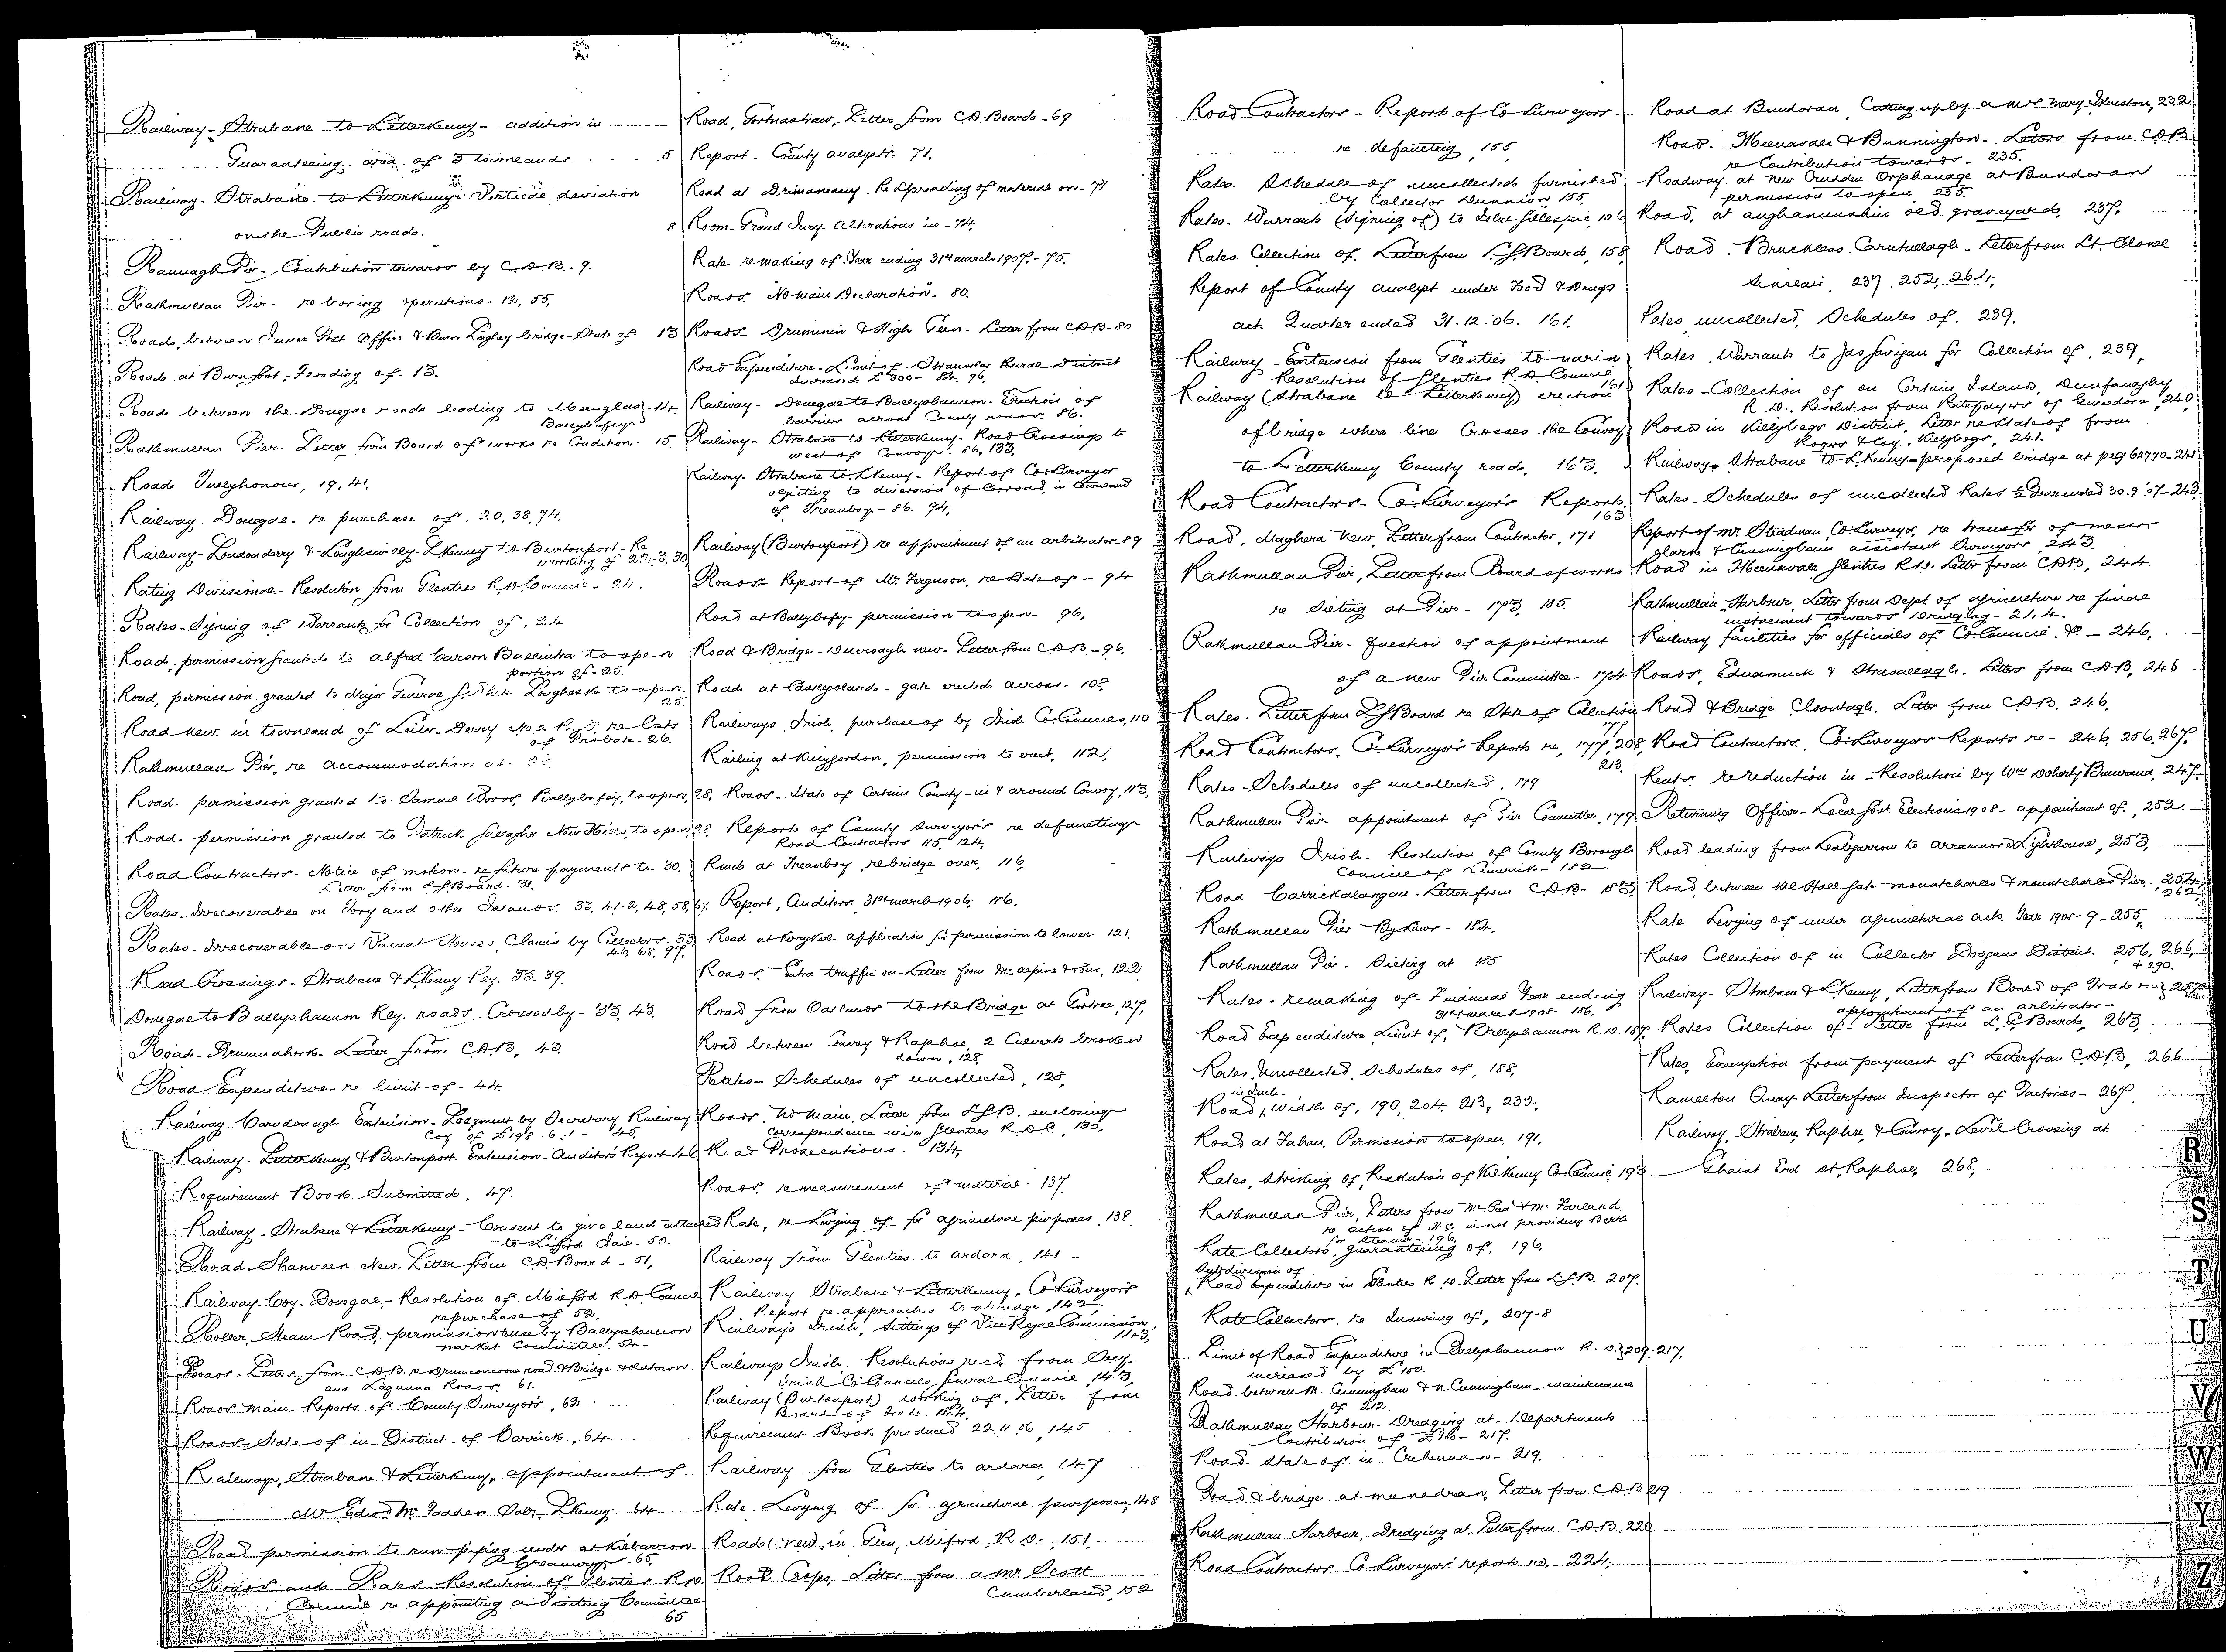 Railway - Strabane to Letterkenny - addition in
Guaranteeing area of 3 townlands . . . 5
Railway - Strabane to Letterkenny - Vertical deviation
on the Public roads. 8
Rannagh Pier - Contribution towards by C.D.B. - 9.
Rathmullan Pier - re boring operations - 12, 55,
Roads, between Inver Post Office & Bridge - State of 13
Roads at Burnfoot - Flooding of - 13.
Roads between the Donegal roads leading to Meenglas - 14.
Ballybofey
Rathmullan Pier - Letter from Board of works re Condition - 15.
Road Tullyhonour, 19, 41.
Railway Donegal - re purchase of, 20, 38, 74.
Railway - Londonderry & Loughswilly - L'Kenny to Burtonport - Re
working of 22, 3, 30
Rating Divisional - Resolution from Glenties R.D. Council - 24.
Rates - Signing of Warrants for Collection of, 24
Road, permission granted to Alfred Carson Ballintra to open
portion of - 25.
Road, permission granted to Major Lougheask to open
25.
Road new in townland of Leiter - Derry No. 2 R.D. re Costs
of Probate - 26.
Rathmullan Pier, re accommodation at -
Road - permission granted to Samuel Woods, Ballybofey, to open, 28.
Road - permission granted to Patrick Gallagher New Mills, to open 28.
Road Contractors - Notice of motion - re future payments to - 30,
Letter from L.G. Board - 31.
Rates - Irrecoverable on Tory and other Islands. 33, 41-2, 48, 58, 67.
Rates - Irrecoverable on Vacant Houses, Claims by Collectors - 33
46, 68, 97.
Road Crossings - Strabane & L'Kenny Rly. 33. 39.
Donegal to Ballyshannon Rly. roads Crossed by - 33, 43.
Road - Drumnahork - Letter from C.D.B, 43.
Road Expenditure - re limit of - 44.
Railway Carndonagh Extension - Lodgment by Secretary Railway
Coy of £198 . 6 . 1 - 45,
Railway - Letterkenny & Burtonport Extension - Auditors Report - 46
Requirement Book Submitted, 47.
Railway - Strabane & Letterkenny - Consent to give land attached
to Lifford Jail - 50.
Road - Shanveen New - Letter from C.D. Board - 51,
Railway Coy. Donegal, - Resolution of Milford R.D. Council
re purchase of 52.
Roller, Steam Road, permission to use by Ballyshannon
market Committee. 54 -
Roads - Letters from C.D.B. re road & Bridge
and Lagunna Roads. 61.
Roads main - Reports of County Surveyors, 62
Roads - State of in District of Carrick, 64
Railway, Strabane & Letterkenny, appointment of
Mr Edwd McFadden Solr. L'Kenny - 64
Road permission to run piping under at Kilbarron
Creamery - 65,
Roads and Rates Resolution of Glenties R.D.
Council re appointing a Visiting Committee
65
Road, Gortnastraw, Letter from C.D. Board - 69
Report - County analysts. 71,
Road at Drimanany. Re Spreading of material on - 71
Room - Grand Jury - Alterations in - 74,
Rate - re making of. Year ending 31st march 1907. - 75.
Roads. "No main Declaration" - 80.
Roads - Drumnin & High Glen - Letter from C.D.B - 80
Road Expenditure - Limit of - Stranorlar Rural District
increased £300 - 84. 96.
Railway - Donegal to Ballyshannon - Erection of
barriers across County roads. 86.
Railway - Strabane to Letterkenny - Road Crossings to
west of Convoy. 86, 133,
Railway - Strabane to L'Kenny - Report of Co. Surveyor
objecting to diversion of Co. road in townland
of Treanboy - 86. 94,
Railway (Burtonport) re appointment of an arbitrator - 89
Roads - Report of Mr Ferguson, re State of - 94
Road at Ballybofey - permission to open - 96,
Road & Bridge - new - Letter from C.D.B. - 96.
Roads at Castlyolands - gate erected across - 108.
Railways Irish, purchase of by Irish Co. Councils, 110
Railing at Killygordon, permission to erect, 112,
Roads - State of Certain County - in & around Convoy, 113,
Reports of County Surveyors re defaulting
Road Contractors 115, 124,
Roads at Treanboy, re bridge over, 116,
Report, Auditors, 31st march 1906. 116.
Road at Kerrykeel - application for permission to lower - 121,
Roads. Extra traffic on - Letter from McAlpine & Sons, 122,
Road from Oaslands to the Bridge at Gortree, 127,
Road between Convoy & Raphoe, 2 Culverts broken
down, 128
Rates - Schedules of uncollected, 128,
Roads, No main, Letter from L.G.B. enclosing
Correspondence with Glenties R.D.C., 130.
Road Prosecutions - 134,
Roads re measurement of material - 137
Rate, re Levying of for agricultural purposes, 138
Railway from Glenties to Ardara, 141 -
Railway Strabane & Letterkenny, Co. Surveyors
Report re approaches to a bridge, 142,
Railways Irish, Sittings of Vice Regal Commission,
143,
Railways Irish Resolutions recd. from Secy.
Irish Co. Councils General Council, 143,
Railway (Burtonport) working of, Letter from
Board of Trade - 144,
Requirement Book produced 22.11.06, 145
Railway from Glenties to Ardara 147
Rate Levying of for agricultural purposes, 148
Roads (New) in Glen, Milford R.D., 151,
Road Crops, Letter from a Mr Scott
Cumberland, 152
Road Contractors - Reports of Co Surveyors
re defaulting, 155,
Rates. Schedule of uncollected furnished
by Collector Dunnion 155,
Rates - Warrants (Signing of) to John Gillespie, 156,
Rates Collection of, Letter from L.G. Board, 158
Report of County analyst under Food & Drugs
act - Quarter ended 31.12.06. 161.
Railway - Extension from Glenties to Narin
Resolution of Glenties R.D. Council
161
Railway (Strabane to Letterkenny) erection
of bridge where line Crosses the Convoy
to Letterkenny County road, 163,
Road Contractors - Co. Surveyor's Reports.
163
Road, Maghera New, Letter from Contractor, 171
Rathmullan Pier, Letter from Board of works
re Silting at Pier - 173, 185.
Rathmullan Pier - Question of appointment
of a new Pier Committee - 174
Rates - Letter from L.G. Board re State of Collection
177
Road Contractors, Co. Surveyor's Reports re, 177, 208,
213.
Rates - Schedules of uncollected, 179
Rathmullan Pier - appointment of Pier Committee, 179
Railways Irish - Resolution of County Borough
Council of Limerick - 182
Road Carrickalangan - Letter from C.D.B - 183
Rathmullan Pier Bye Laws - 184.
Rathmullan Pier - Silting at 185
Rates - remaking of - Financial Year ending
31st march 1908. 186.
Road Expenditure Limit of, Ballyshannon R.D. 187,
Rates, Uncollected, Schedules of, 188,
Road, Width of, 190, 204, 213, 232,
Road at Fahan, Permission to open, 191,
Rates, Striking of, Resolution of Kilkenny Co. Council, 193
Rathmullan Pier, Letters from McGee & McFarland
re action of in not providing Berth
for Steamer - 196,
Rate Collectors, guaranteeing of, 196,
Subdivision of
Road expenditure in Glenties R.D. Letter from L.G.B. 207.
Rate Collectors re insuring of, 207-8
Limit of Road Expenditure in Ballyshannon R.D. } 209, 217.
increased by £150.
Road between M. Cunningham & N. Cunningham - maintenance
of 212.
Rathmullan Harbour - Dredging at - Departments
Contribution of - 217.
Road - State of in - 219.
Road & bridge at Letter from C.D.B 219
Rathmullan Harbour, Dredging at, Letter from C.D.B. 220
Road Contractors Co Surveyors' reports re. 224,
Road at Bundoran, Cutting up by a Mrs. Mary Johnston, 232
Road - Meenavalla & Bunnington - Letters from C.D.B
re Contribution towards - 235.
Roadway at new Orphanage at Bundoran
permission to open 235.
Road, at Aughanunshin old graveyard, 237.
Road - Bruckless Caruhullagh - Letter from Lt. Colonel
Sinclair, 237, 252, 264,
Rates uncollected, Schedules of, 239.
Rates, Warrants to Jas Gavigan for Collection of, 239,
Rates - Collection of on Certain Islands, Dunfanaghy
R.D. Resolution from Ratepayers of Gweedore, 240,
Road in Killybegs District, Letter re State of from
Rogers & Coy. Killybegs, 241.
Railway - Strabane to L'Kenny - proposed bridge at peg 62770 - 241
Rates - Schedules of uncollected Rates ½ Year ended 30.9.07 - 243,
Report of Mr. Steadman, Co. Surveyor, re transfer of messrs
Clarke & Cunningham assistant Surveyors, 243.
Road in Meenavalla Glenties R.D. Letter from C.D.B, 244.
Rathmullan Harbour, Letter from Dept of agriculture re final
instalment towards Dredging - 244.
Railway facilities for officials of Co. Council, &c - 246,
Roads, Ednamuck & Letters from C.D.B, 246
Road & Bridge Cloontagh. Letter from C.D.B. 246.
Road Contractors, Co. Surveyors Reports re - 246, 256, 267,
Rents - re reduction in - Resolution by Wm Doherty 247.
Returning Officer - Local Govt. Elections 1908 - appointment of, 252.
Road leading from Leabgarrow to Arranmore Lighthouse, 253,
Road between the Hall Gate mountcharles & mountcharles Pier, 254,
262
Rate Levying of under agricultural acts Year 1908-9 - 255,
Rates Collection of in Collector Doogans District. 256, 266,
& 290.
Railway - Strabane & L'Kenny, Letter from Board of Trade re
appointment of an arbitrator -
Rates Collection of - Letter from L.G. Board, 263,
Rates, Exemption from payment of Letter from C.D.B, 266
Ramelton Quay Letter from Inspector of Factories - 267,
Railway, Strabane, Raphoe, & Convoy, Level Crossing at
End St. Raphoe, 268,
R
S
T
U
V
W
Y
Z